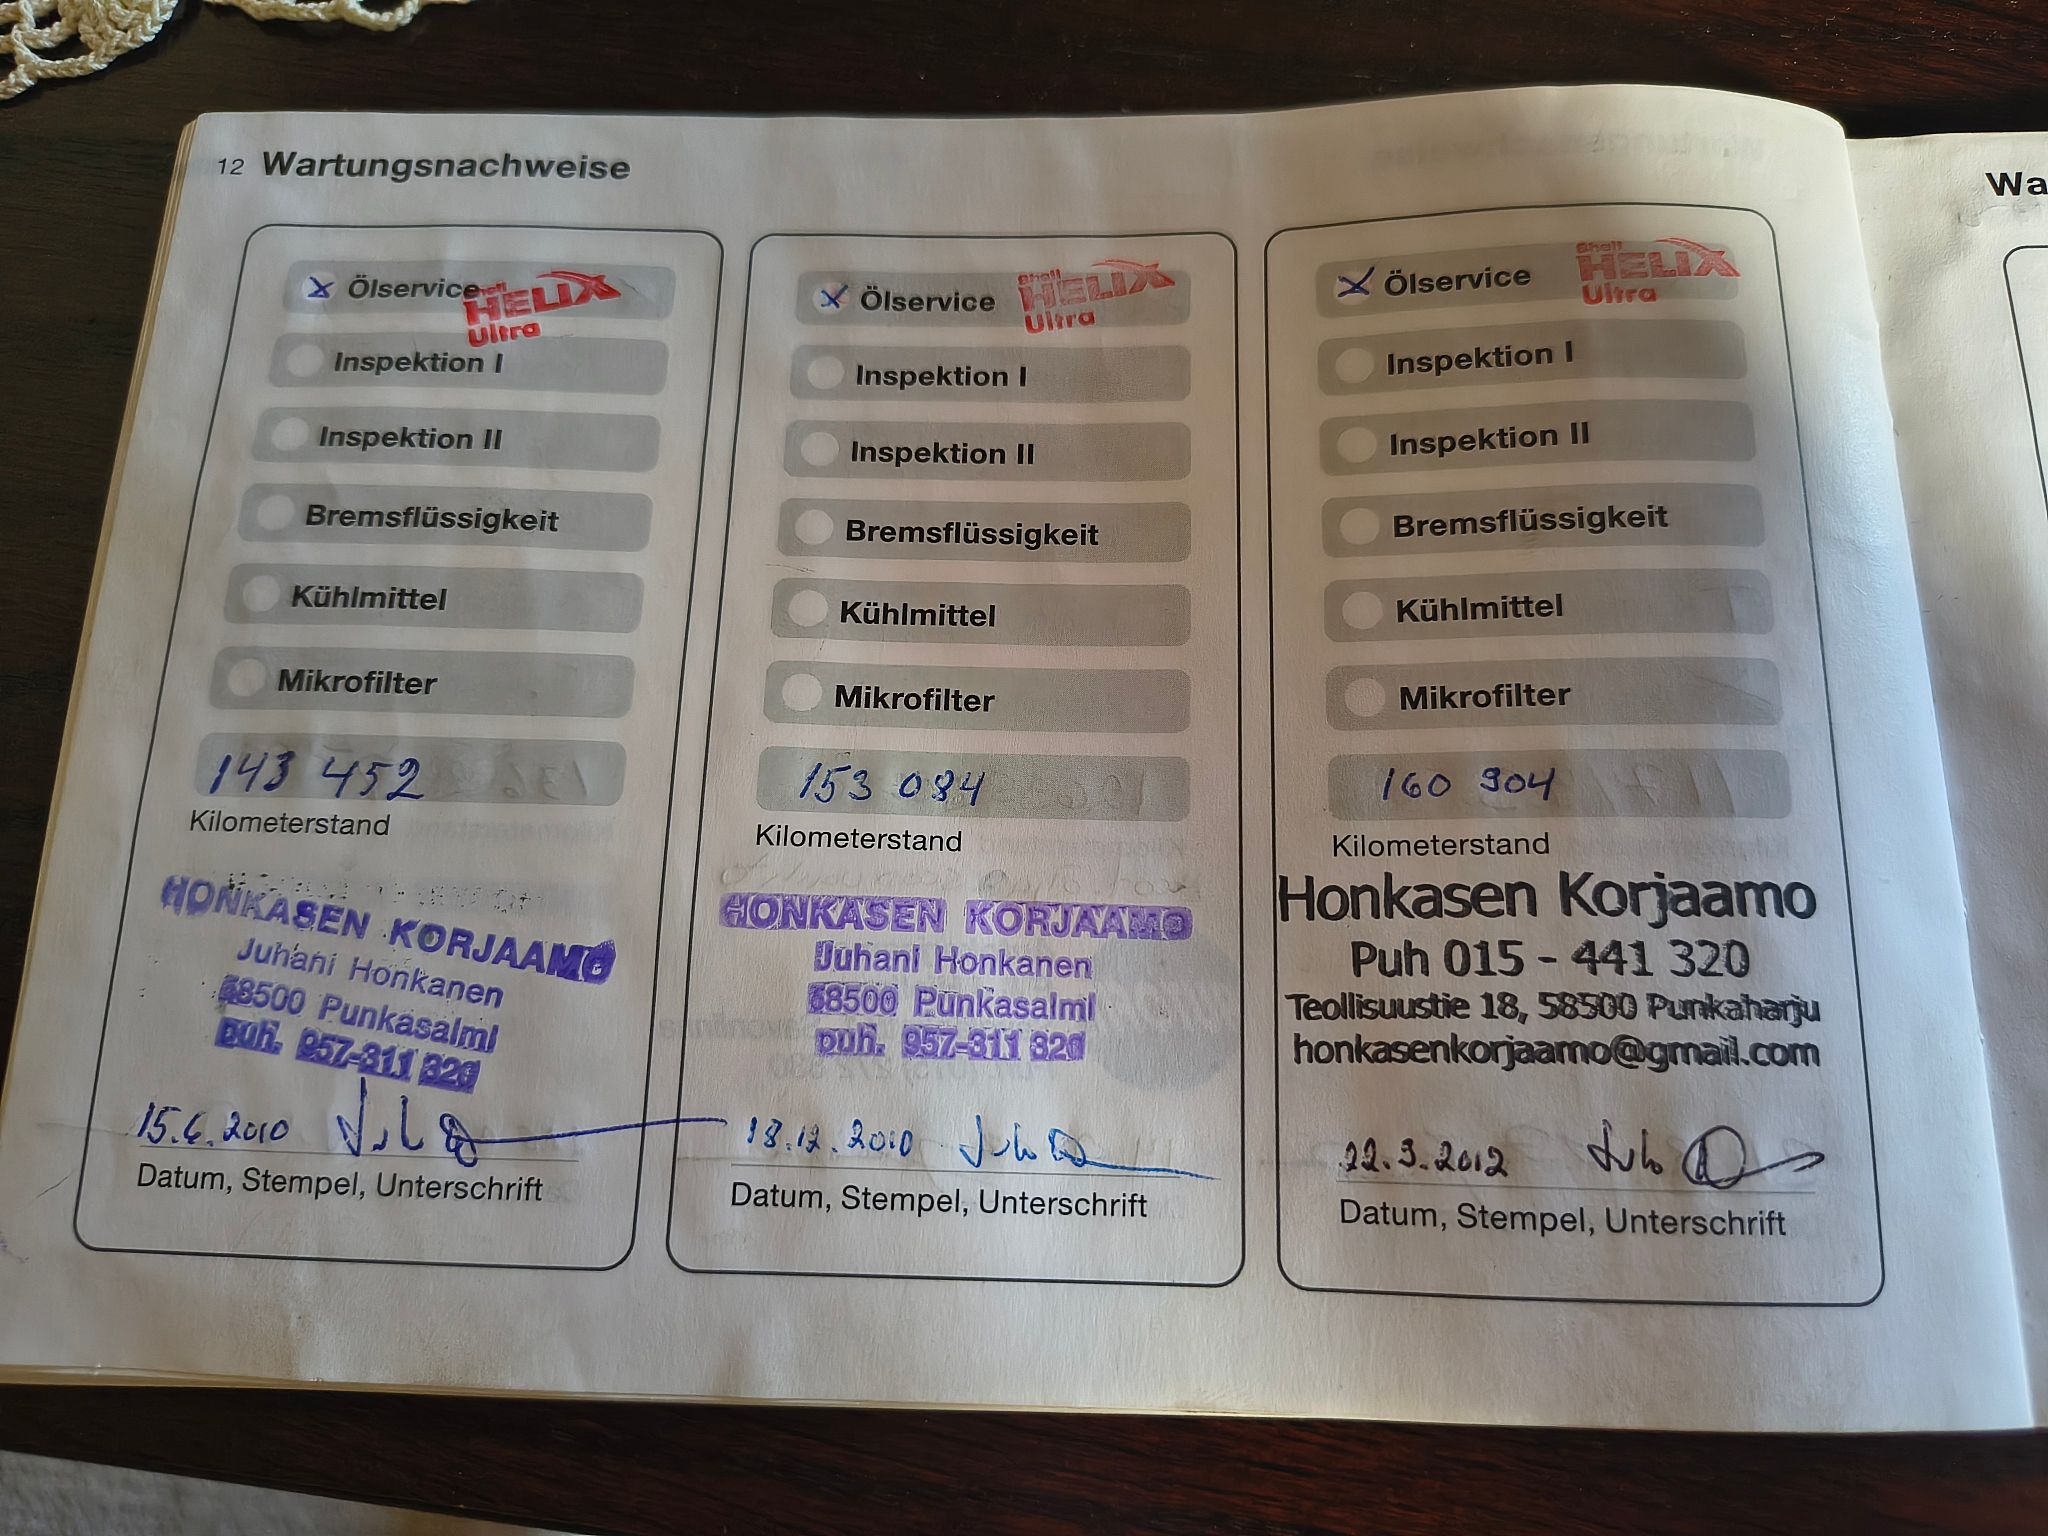 12 Wartungsnachweise
Ölservice
Shell
HELIX
Ultra
Inspektion I
Inspektion II
Bremsflüssigkeit
Kühlmittel
Mikrofilter
143 452
Kilometerstand
HONKASEN KORJAAMO
Juhani Honkanen
58500 Punkasalmi
puh. 957-311 320
15.6.2010
Datum, Stempel, Unterschrift
Ölservice
Shell
HELIX
Ultra
Inspektion I
Inspektion II
Bremsflüssigkeit
Kühlmittel
Mikrofilter
153 084
Kilometerstand
HONKASEN KORJAAMO
Juhani Honkanen
58500 Punkasalmi
puh. 957-311 320
18.12.2010
Datum, Stempel, Unterschrift
Ölservice
Shell
HELIX
Ultra
Inspektion I
Inspektion II
Bremsflüssigkeit
Kühlmittel
Mikrofilter
160 904
Kilometerstand
Honkasen Korjaamo
Puh 015 - 441 320
Teollisuustie 18, 58500 Punkaharju
honkasenkorjaamo@gmail.com
22.3.2012
Datum, Stempel, Unterschrift
Wa